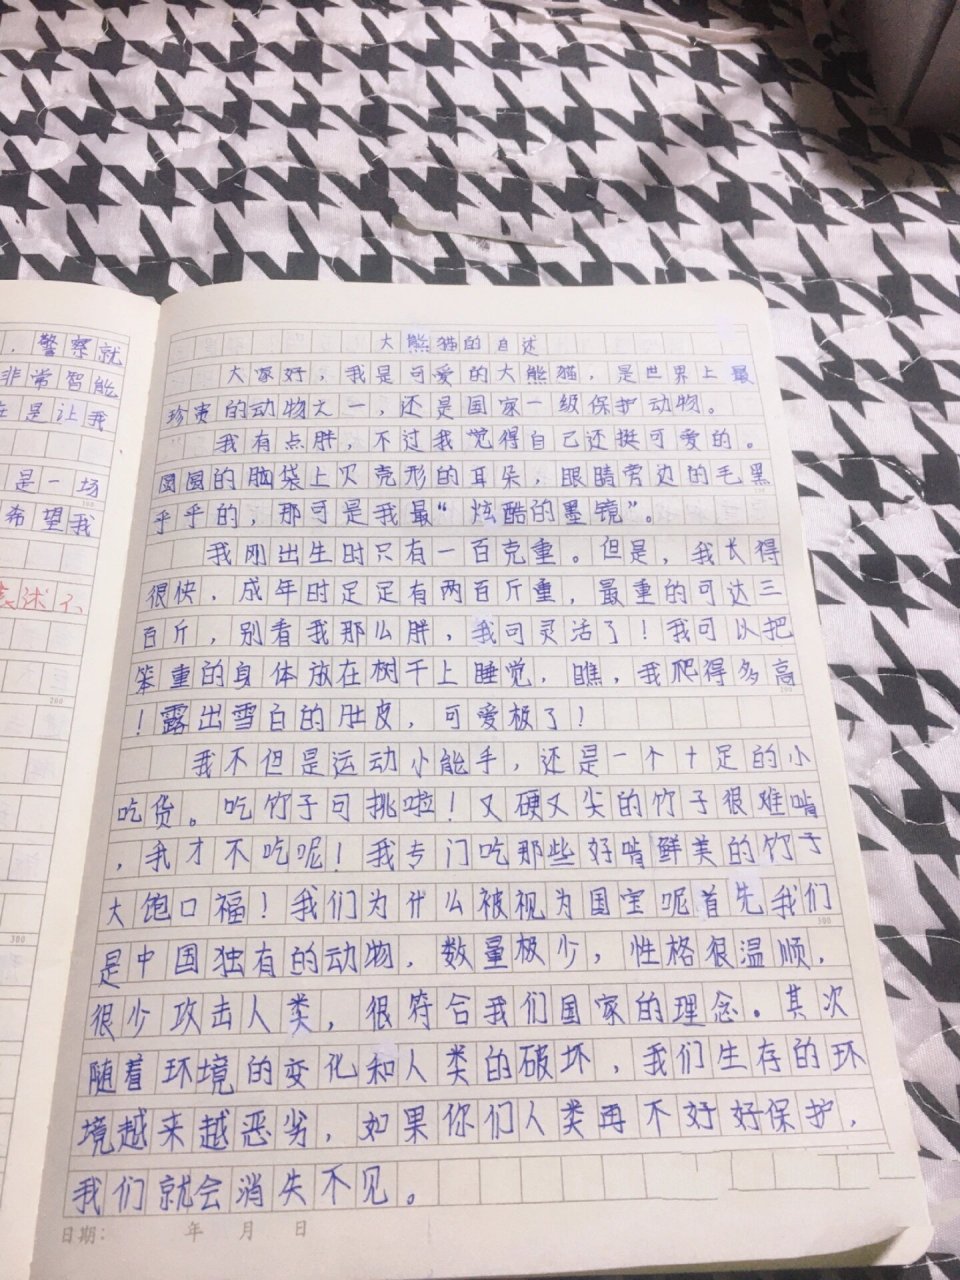 ，警察就
非常智能
在是让我
是一场
希望我
述不
大熊猫的自述
大家好，我是可爱的大熊猫，是世界上最
珍贵的动物之一，还是国家一级保护动物。
我有点胖，不过我觉得自己还挺可爱的。
圆圆的脑袋上贝壳形的耳朵，眼睛旁边的毛黑
乎乎的，那可是我最“炫酷的墨镜”。
我刚出生时只有一百克重。但是，我长得
很快，成年时足足有两百斤重，最重的可达三
百斤，别看我那么胖，我可灵活了！我可以把
笨重的身体放在树干上睡觉，瞧，我爬得多高
！露出雪白的肚皮，可爱极了！
我不但是运动小能手，还是一个十足的小
吃货。吃竹子可挑啦！又硬又尖的竹子很难啃
，我才不吃呢！我专门吃那些好啃鲜美的竹子
大饱口福！我们为什么被视为国宝呢首先我们
是中国独有的动物，数量极少，性格很温顺，
很少攻击人类，很符合我们国家的理念。其次
随着环境的变化和人类的破坏，我们生存的环
境越来越恶劣，如果你们人类再不好好保护，
我们就会消失不见。
日期： 年 月 日
200
300
200
300